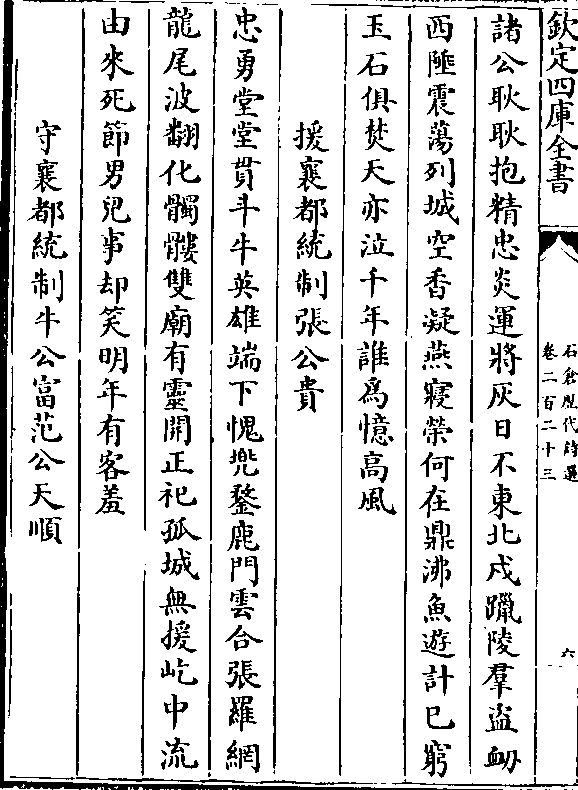 欽定四庫全書
石倉歷代詩選
卷二百二十三
六
諸公耿耿抱精忠炎運將灰日不東北戍躐陵羣盜衂
西陲震蕩列城空香凝燕寢榮何在鼎沸魚遊計已窮
玉石俱焚天亦泣千年誰爲憶高風
援襄都統制張公貴
忠勇堂堂貫斗牛英雄端下愧兜鍪鹿門雲合張羅網
龍尾波翻化髑髏雙廟有靈開正祀孤城無援屹中流
由來死節男兒事却笑明年有客羞
守襄都統制牛公富范公天順